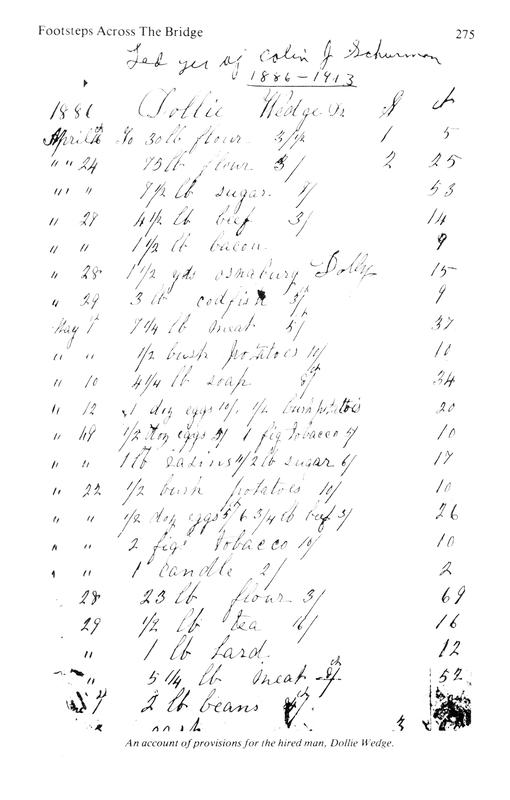 Footsteps Across The Bridge 275
Led yer of Colin J Schurman
1886-1913
1886 Dollie Wedge Dr $ ct
April To 30 lb flour 3 1/2 1 5
" " 24 75 lb flour 3/ 2 25
" " " 7 1/2 lb sugar 7/ 53
" 27 4 1/2 lb beef 3/ 14
" " 1 1/2 lb bacon 9
" 28 1 1/2 yds osnabury Dolly 15
" 29 3 lb codfish 3/ 9
May 7 1/4 lb meat 5/ 37
" " 1/2 bush potatoes 10/ 10
" 10 4 1/4 lb soap 8/ 34
" 12 1 doz eggs 10/, 1/2 bush potatoes 20
" 19 1/2 doz eggs 5/ 1 fig tobacco 5/ 10
" " 1 lb rasins 1/2 lb sugar 6/ 17
" 22 1/2 bush potatoes 10/ 10
" " 1/2 doz eggs 5/ 6 3/4 lb beef 3/ 26
" " 2 figs tobacco 10/ 10
" " 1 candle 2/ 2
28 23 lb flour 3/ 69
29 1/2 lb tea 16/ 16
" 1 lb Lard 12
" 5 1/4 lb meat 52
2 lb beans
3
An account of provisions for the hired man, Dollie Wedge.